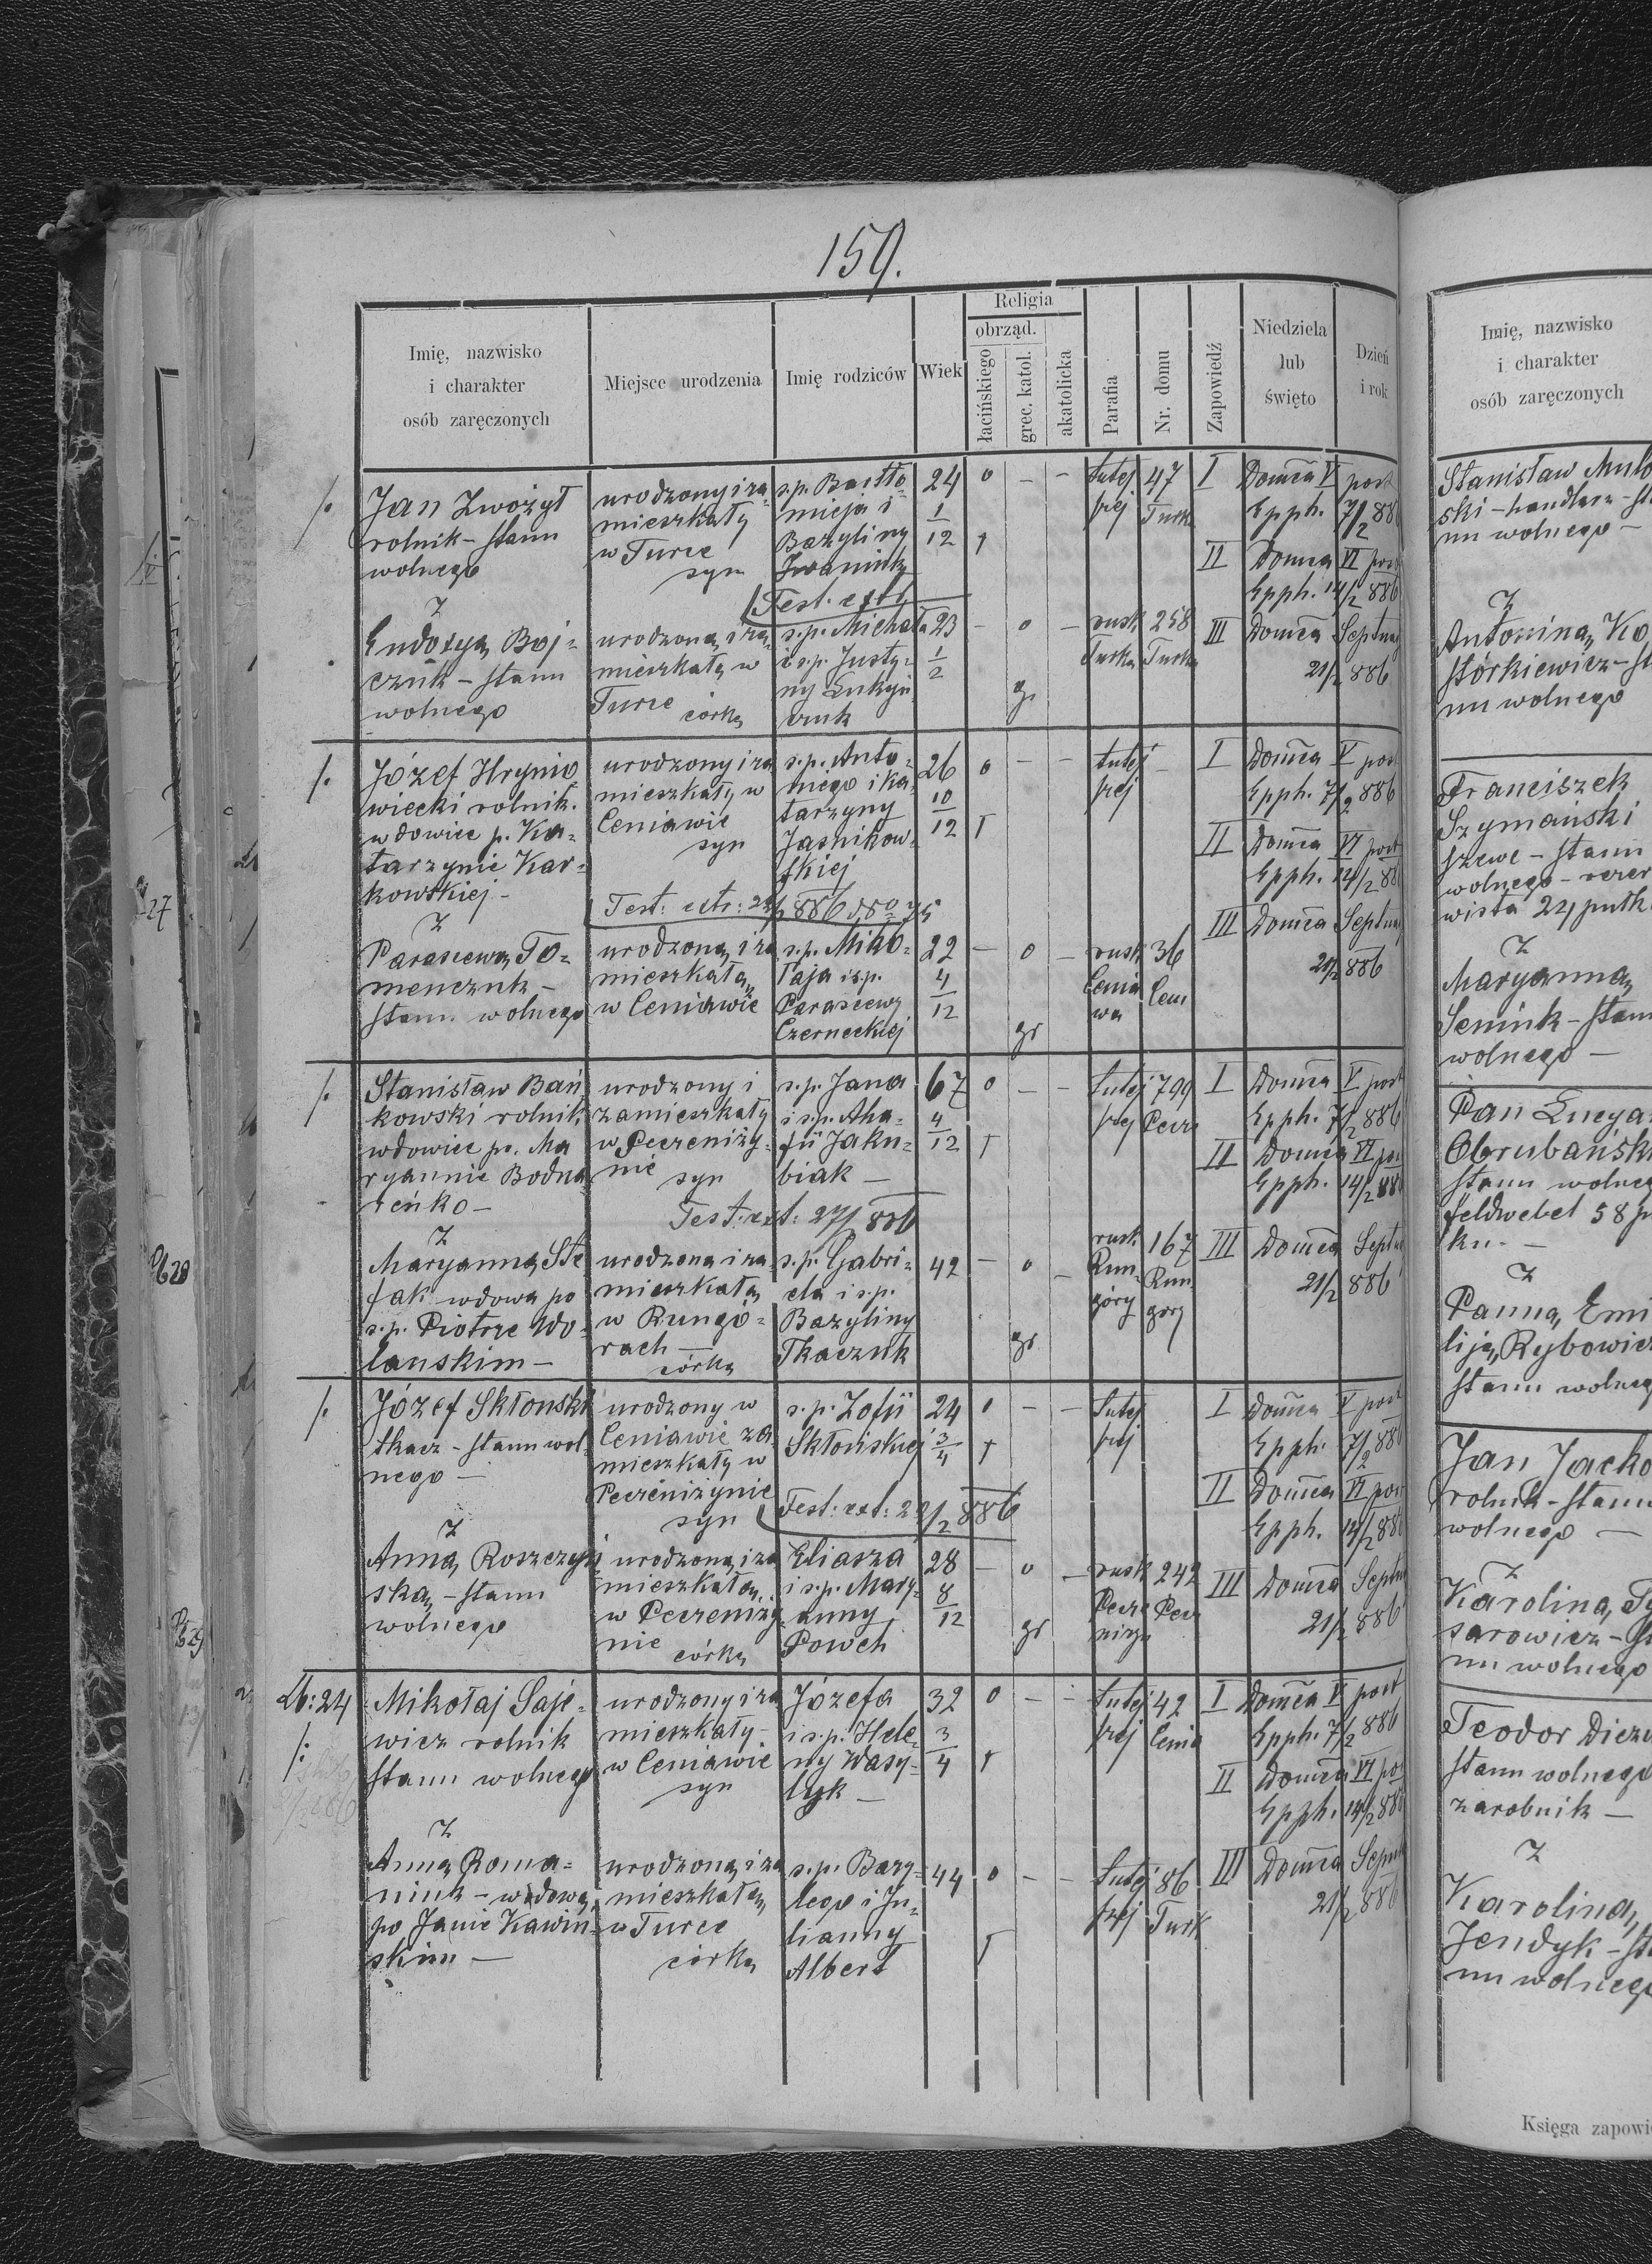 159.
Imię, nazwisko
i charakter
osób zaręczonych
Miejsce urodzenia
Imię rodziców
Wiek
Religia
obrząd.
łacińskiego
grec. katol.
akatolicka
Parafia
Nr. domu
Zapowiedź
Niedziela
lub
święto
Dzień
i rok
Jan Zwożył
rolnik - stanu
wolnego
urodzony i za
mieszkały
w Turce
syn
s.p. Bartło-
mieja i
Bazyliny
Iwaniuk
24
1/12
0 - -
tutej
szej
47
Turka
I Domca V post
Epph. 7/2 886
II Domca VI post
Epph. 14/2 886
Test. extr.
z
Eudoxyą Boj-
czuk - stanu
wolnego
urodzoną i za
mieszkałą w
Turce córką
s.p. Michała
i s.p. Justy-
ny Lukyn
czuk
23
1/2
- 0 -
gr
rusk
Turka
258
Turka
III Domca Septuag
21/2 886
Józef Hrynio
wiecki rolnik.
wdowiec p. Ka-
tarzynie Kar-
kowskiej -
urodzony i za
mieszkały w
Ceniawie
syn
s.p. Anto-
niego i Ka-
tarzyny
Jasnikow-
skiej
26
10/12
0 - -
tutej
szej
I Domca V post
Epph. 7/2 886
II Domca VI post
Epph. 14/2 886
z
Parascewą To-
menczuk -
stanu wolnego
urodzoną i za
mieszkałą
w Ceniawie
s.p. Miko-
łaja i s.p.
Parascewy
Czerneckiej
22
4/12
- 0 -
gr
rusk
Cenia
wa
36
Ceni
III Domca Septuag
21/2 886
Stanisław Bań
kowski rolnik
wdowiec po. Ma
ryannie Bodna
reńko -
urodzony i
zamieszkały
w Peczeniży-
nie syn
s.p. Jana
i s.p. Aha-
fii Jaku-
biak -
67
4/12
0 - -
tutej
szej
799
Pecze
I Domca V post
Epph. 7/2 886
II Domca VI post
Epph. 14/2 886
Test. ext: 27/2 886
z
Maryanną Ste
fak wdową po
s.p. Piotrze Wo-
lanskim -
urodzoną i za
mieszkałą
w Rungó-
rach -
córką
s.p. Gabri-
ela i s.p.
Bazyliny
Tkaczuk
42
- 0 -
gr
rusk
Run-
góry
167
Run
góry
III Domca Septuag
21/2 886
Józef Skłonski
tkacz - stanu wol-
nego -
urodzony w
Ceniawie za
mieszkały w
Peczeniżynie
syn
s.p. Zofii
Skłońskiej
24
3/4
0 - -
tutej
szej
I Domca V post
Epph. 7/2 886
II Domca VI post
Epph. 14/2 886
z
Anną Roszczyń
ską - stanu
wolnego
urodzoną i za
mieszkałą
w Peczeniży
nie córką
Eliasza
i s.p. Mary-
anny
Powch
28
8/12
- 0 -
gr
rusk
Pecze
niżyn
242
Pecz
III Domca Septuag
21/2 886
Lb: 24
Mikołaj Saje-
wicz rolnik
stanu wolnego
urodzony i za
mieszkały
w Ceniawie
syn
Józefa
i s.p. Hele-
ny Wasy-
lyk -
32
3/4
0 - -
tutej
szej
42
Cenia
I Domca V post
Epph. 7/2 886
II Domca VI post
Epph. 14/2 886
z
Anną Roma-
niuk - wdową
po Janie Kawin-
skim -
urodzoną i za
mieszkałą
w Turce
córką
s.p. Bazy-
lego i Ju-
lianny
Albert
44
0 - -
tutej
szej
86
Turk
III Domca Septuag
21/2 886
Imię, nazwisko
i charakter
osób zaręczonych
ski - handlarz
nu wolnego -
z
Antoniną Ko
stórkiewicz - st
nu wolnego
Franciszek
Szymański
szewc - stanu
wolnego - rezer
wista 24 pułk
z
Maryanną
Seniuk - stanu
wolnego -
stanu wolneg
feldwebel 58 p
ku. -
z
Panną Emi
liją Rybowicz
stanu wolneg
rolnik - stanu
wolnego -
z
Karoliną
sarowicz - st
nu wolnego
stanu wolnego
zarobnik -
z
Karoliną
Jendyk - st
nu wolnego
Księga zapowie